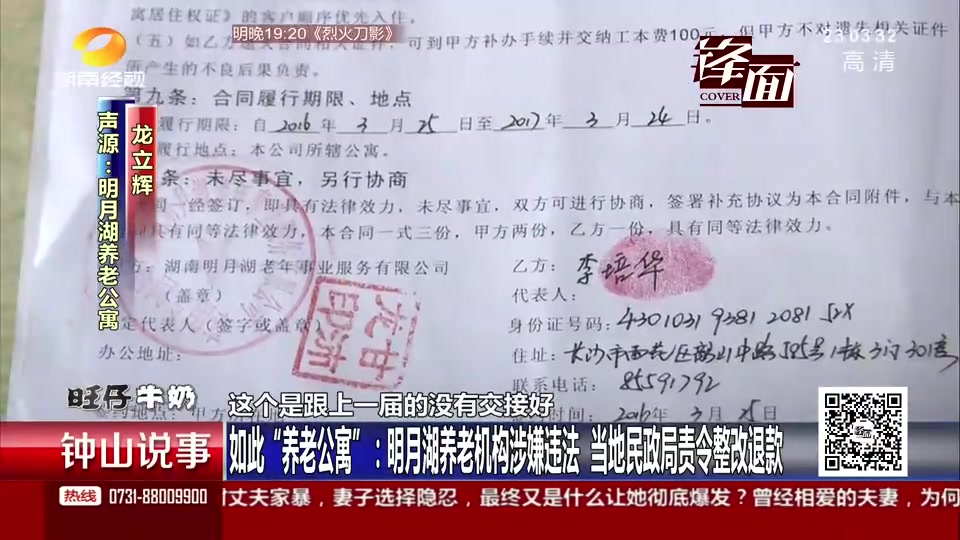 寓居住权证》的客户顺序优先入住。
明晚19:20《烈火刀影》
可到甲方补办手续并交纳工本费100元，但甲方不对遗失相关证件
所产生的不良后果负责。
湖南经视
锋面
COVER
23:03:32
高清
第九条：合同履行期限、地点
履行期限：自 2016 年 3 月 25 日至 2017 年 3 月 24 日。
履行地点：本公司所辖公寓。
条：未尽事宜，另行协商
同一经签订，即具有法律效力，未尽事宜，双方可进行协商，签署补充协议为本合同附件，与本
具有同等法律效力，本合同一式三份，甲方两份，乙方一份，具有同等法律效力。
方：湖南明月湖老年事业服务有限公司
（盖章）
定代表人（签字或盖章）
办公地址：
乙方：李培华
代表人：
身份证号码：
住址：
联系电话：85591792
时间：2016 年 3 月 25 日
龙立辉
声源：明月湖养老公寓
旺仔牛奶
这个是跟上一届的没有交接好
钟山说事
如此“养老公寓”：明月湖养老机构涉嫌违法 当地民政局责令整改退款
热线 0731-88009900
丈夫家暴，妻子选择隐忍，最终又是什么让她彻底爆发？曾经相爱的夫妻，为何